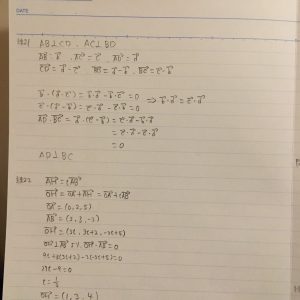 DATE
練21 AB⊥CD , AC⊥BD
$\vec{AB}=\vec{b}$ , $\vec{AC}=\vec{c}$ , $\vec{AD}=\vec{d}$
$\vec{CD}=\vec{d}-\vec{c}$ $\vec{BD}=\vec{d}-\vec{b}$ , $\vec{BC}=\vec{c}-\vec{b}$
$\vec{b}·(\vec{d}-\vec{c})=\vec{b}·\vec{d}-\vec{b}·\vec{c}=0$
$\vec{c}·(\vec{d}-\vec{b})=\vec{c}·\vec{d}-\vec{c}·\vec{b}=0$ ⇒ $\vec{b}·\vec{d}=\vec{c}·\vec{d}$
$\vec{AD}·\vec{BC}=\vec{d}·(\vec{c}-\vec{b})=\vec{c}·\vec{d}-\vec{b}·\vec{d}$
$=\vec{c}·\vec{d}-\vec{c}·\vec{d}$
=0
AD⊥BC
練22
$\vec{AH}=t\vec{AB}$
$\vec{OH}=\vec{OA}+\vec{AH}=\vec{OA}+t\vec{AB}$
$\vec{OA}=(0,2,5)$
$\vec{AB}=(3,3,-3)$
$\vec{OH}=(3t,3t+2,-3t+5)$
$\vec{OH}⊥\vec{AB}$より、$\vec{OH}·\vec{AB}=0$
9t+3(3t+2)-3(-3t+5)=0
27t-9=0
$t=\frac{1}{3}$
$\vec{OH}=(1,3,4)$